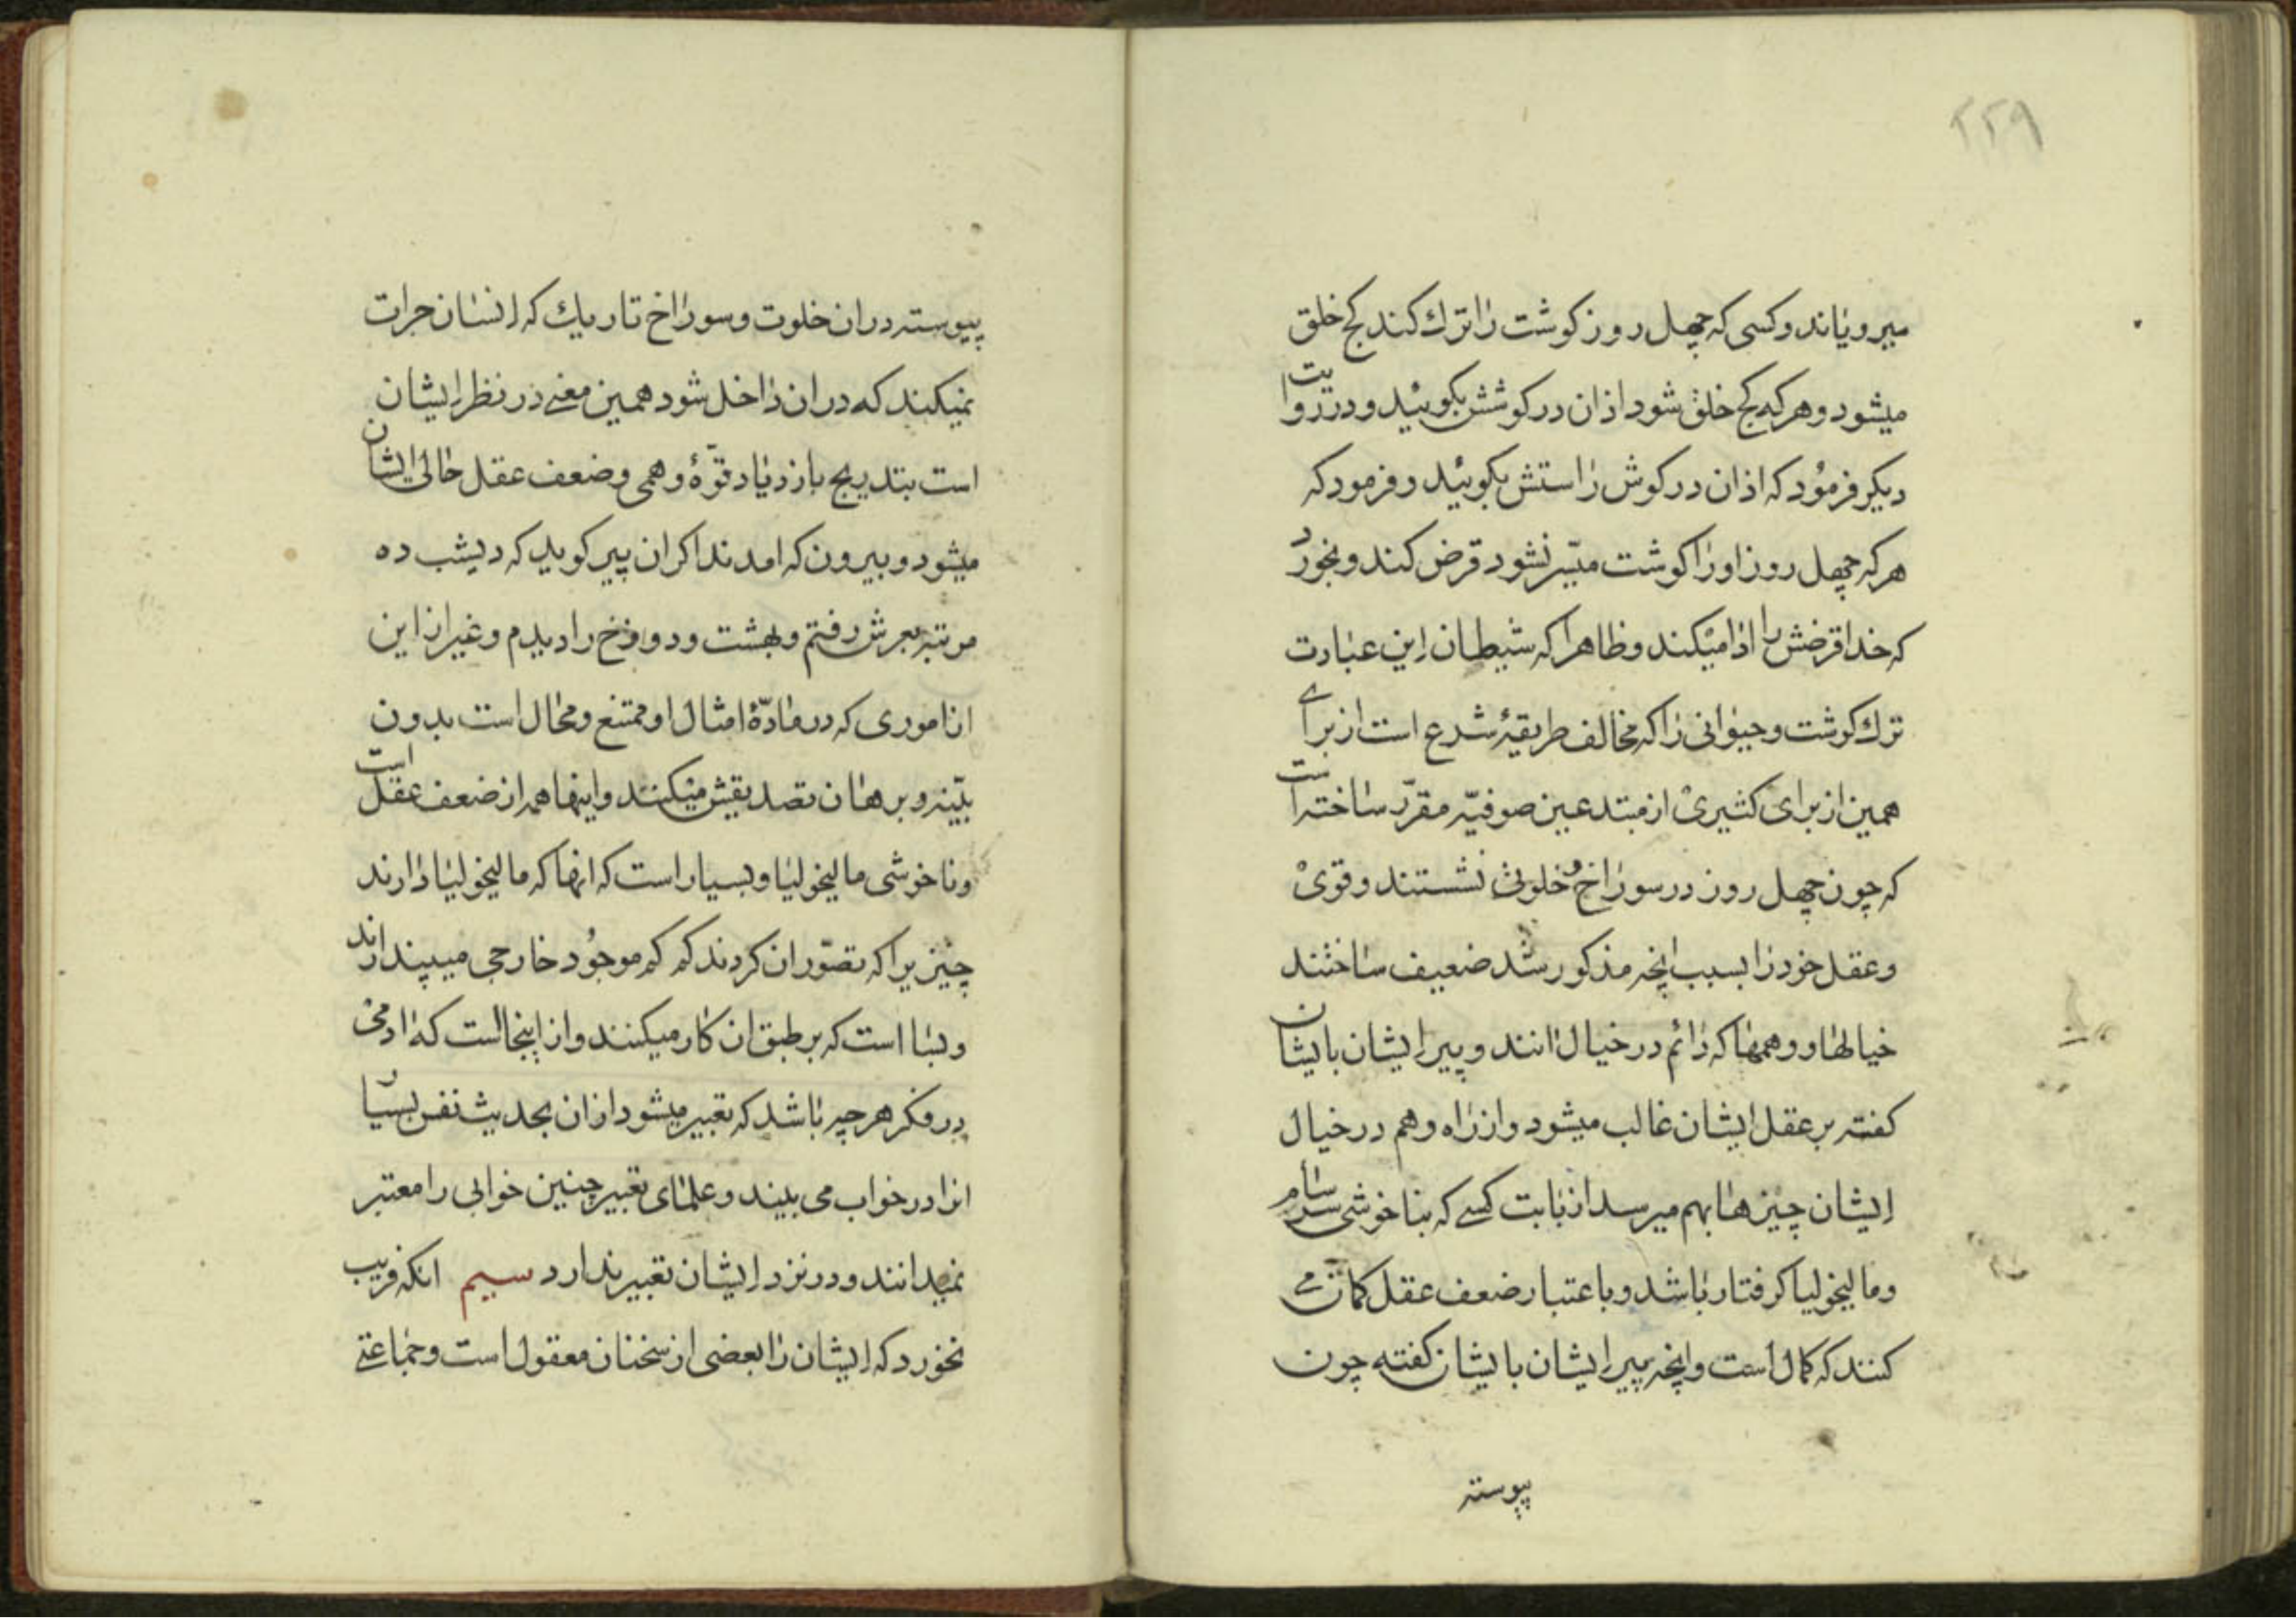 ۲۲۹
میرویاند و کسی که چهل روز کوشت را ترك کند کج خلق
میشود و هرکه کج خلق شود اذان در کوشش بکوئید و در روایت
دیکر فرمود که اذان در کوش راستش بکوئید و فرمود که
هرکه چهل روز او را کوشت میسّر نشود قرض کند و بخورد
که خدا قرضش را ادا میکند و ظاهرا که شیطان این عبارت
ترك کوشت و حیوانی را که مخالف طریقهٔ شرع است از برای
همین از برای کثیری از مبتدعین صوفیّه مقرّر ساخته است
که چون چهل روز در سوراخ و خلوتی نشستند و قوی
و عقل خود را بسبب انچه مذکور شد ضعیف ساختند
خیالها و وهمها که دائم در خیال انند و پیر ایشان بایشان
کفته بر عقل ایشان غالب میشود و از راه وهم در خیال
ایشان چیزها بهم میرسد از بابت کسے که بناخوشی سرسام
و مالیخولیا کرفتار باشد و باعتبار ضعف عقل کمان مے
کنند که کمال است و انچه پیر ایشان بایشان کفته چون
پیوسته
پیوسته در ان خلوت و سوراخ تاریك که انسان جرات
نمیکند که در ان داخل شود همین معنے در نظر ایشان
است بتدریج بازدیاد قوّهٔ وهمی و ضعف عقل حالی ایشان
میشود و بیرون که امدند اکر ان پیر کوید که دیشب ده
مرتبه بعرش رفتم و بهشت و دوزخ را دیدم و غیر از این
از اموری که در مادّهٔ امثال او ممتنع و محال است بدون
بیّنه و برهان تصدیقش میکنند و اینها همه از ضعف عقل است
و ناخوشی مالیخولیا و بسیار است که انها که مالیخولیا دارند
چیزیرا که تصوّر ان کردند که که موجود خارجی میپندارند
و بسا است که بر طبق ان کار میکنند و از اینجا است که ادمی
در فکر هر چه باشد که تعبیر میشود از ان بحدیث نفس بسیار
انرا در خواب می بیند و علمای تعبیر چنین خوابی را معتبر
نمیدانند و در نزد ایشان تعبیر ندارد سیم انکه فریب
نخورد که ایشان را بعضی از سخنان معقول است و جماعتے